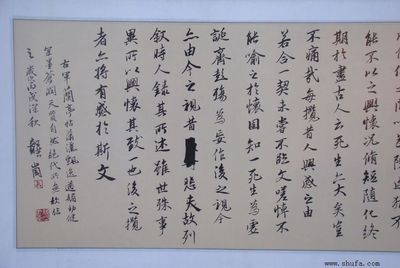 能不以之興懷況脩短隨化終
期於盡古人云死生亦大矣豈
不痛哉每攬昔人興感之由
若合一契未嘗不臨文嗟悼不
能喻之於懷固知一死生為虛
誕齊彭殤為妄作後之視今
亦由今之視昔悲夫故列
叙時人錄其所述雖世殊事
異所以興懷其致一也後之攬
者亦將有感於斯文
右軍蘭亭帖瀟灑飄逸遒媚勁健
天質自然絕代所無
歲次丙戌深秋
www.shufa.com